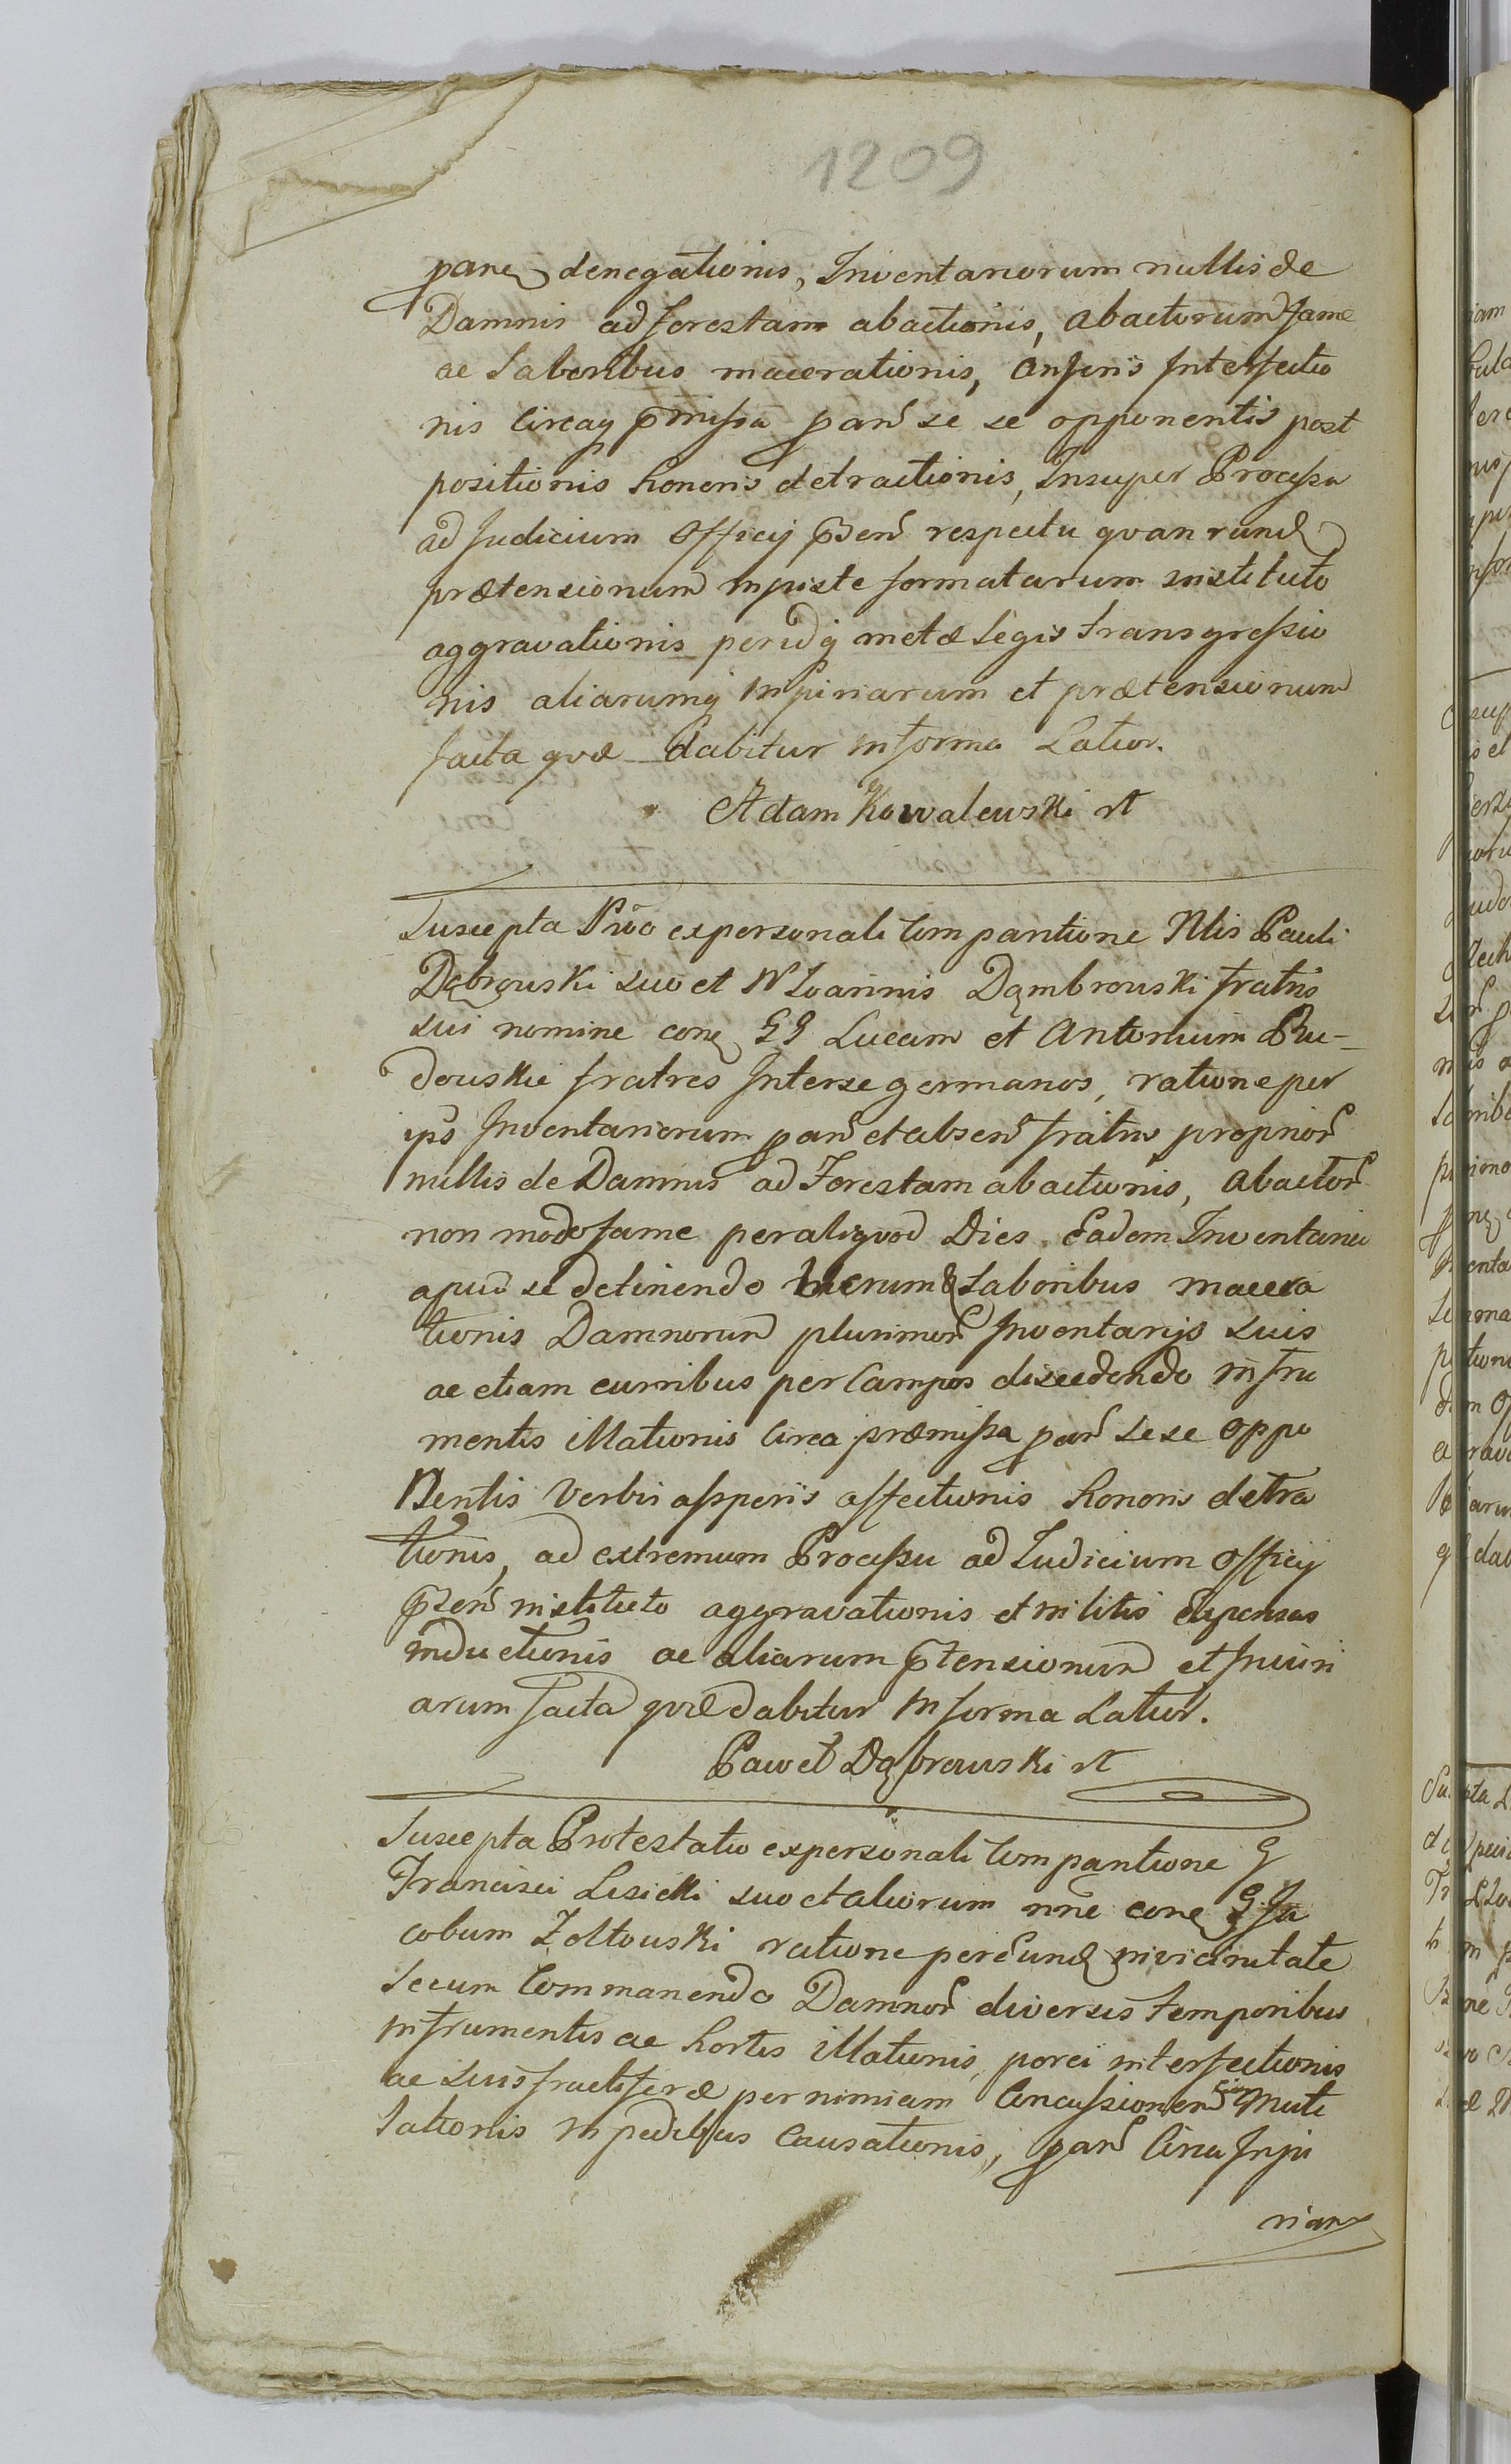 1209
paneɋ denegationis, Inventariorum nullis de
Damnis ad forestam abactionis, abactorum fame
ac Laboribus macerationis, Anseris Interfectio
nis Circaq pmissa pan se se opponentis post
positionis honoris detractionis, Insuper Processu
ad Judicium Officij psen respectu quarund
prætensionum injuste formatarum instituto
aggravationis peridq metæ Legis transgressio
nis aliarumq injuriarum et prætensionum
facta quæ dabitur in forma Latior.
Adam Kowalewski
Suscepta Proo ex personali Comparitione Nlis Pauli
Dąbrowski suo et N Joannis Dąmbrowski fratris
sui nomine cone GG Lucam et Antonium Bu-
dowskie fratres Inter se germanos, ratione per
ips Inventariorum pan et absen fratris proprior
nullis de Damnis ad Forestam abactionis, abactor
non modo fame per aliquod Dies Eadem Inventaria
apud se detinendo verum & Laboribus macera
tionis Damnorum plurimor Inventarijs suis
ac etiam curribus per Campos discedendo in fru
mentis illationis Circa præmissa pan sese oppo
Nentis Verbis asperis affectionis honoris detra
tionis, ad extremum Processu ad Judicium Officij
psen instituto aggravationis et in litis Expensas
inductionis ac aliarum ptensionum et Injuri
arum facta quæ dabitur In forma Latior.
Paweł Dąbrowski
Suscepta Protestatio ex personali Comparitione G
Francisci Lisicki suo et aliorum nne cone G Ja
cobum Zołtowski ratione per Eund in vicinitate
secum Commanendo Damnor diversis temporibus
in frumentis ac hortis illationis, porci interfectionis
ac suis fructiferæ per nimiam Concussionem Muti
lationis In pedibus Causationis, pan Circa Inju
riar